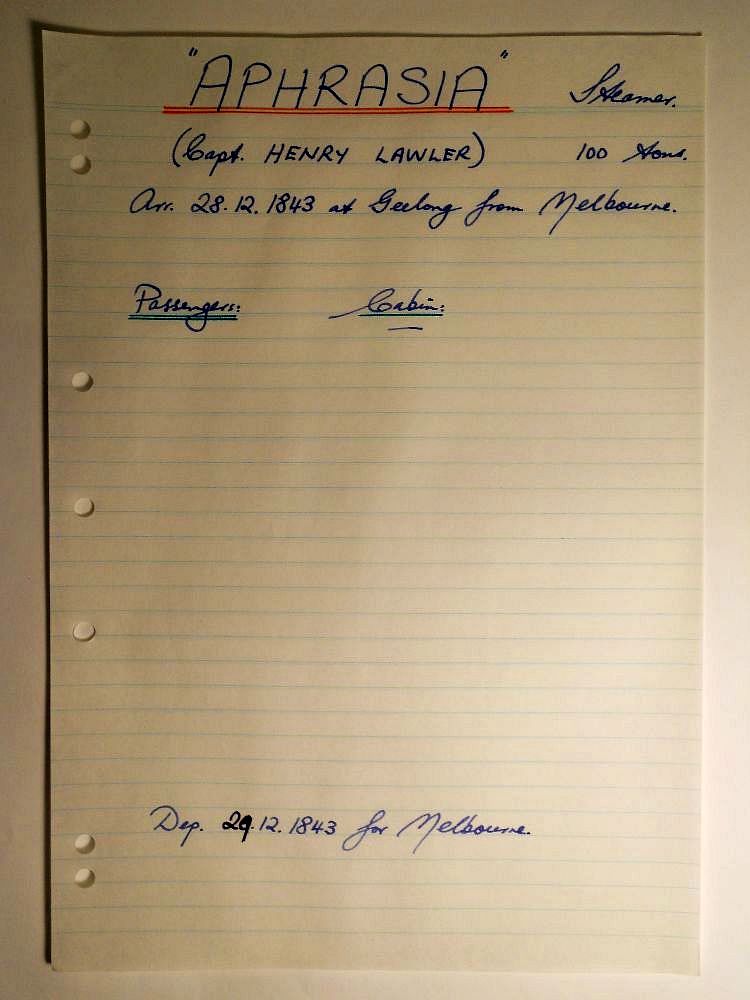 "APHRASIA" Steamer.
(Capt. HENRY LAWLER) 100 tons.
Arr. 28.12.1843 at Geelong from Melbourne.
Passengers: Cabin:
Dep. 29.12.1843 for Melbourne.